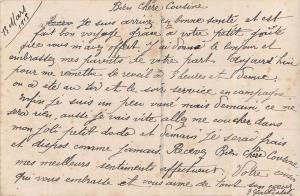 13 Mars 1918
Bien Chère Cousine
Je suis arrivé en bonne santé et est
fait bon voyage grâce à votre petit goûté
que vous m'avez offert. J'ai donné le bonjour et
embrassez mes parents de votre part. Aujourd'hui
pour me remettre le réveil à 7 heures et demie
on a été au et le soir service en campagne
Enfin Je suis un peu vané mais demain, ce ne
sera rien, aussi Je vais vite aller me coucher dans
mon Joli petit dodo et demain Je serai frais
et dispos comme Jamais. Recevez Bien Chère Cousine
mes meilleurs sentiments affectueux. Votre cousin
qui vous embrasse et vous aime de tout son cœur